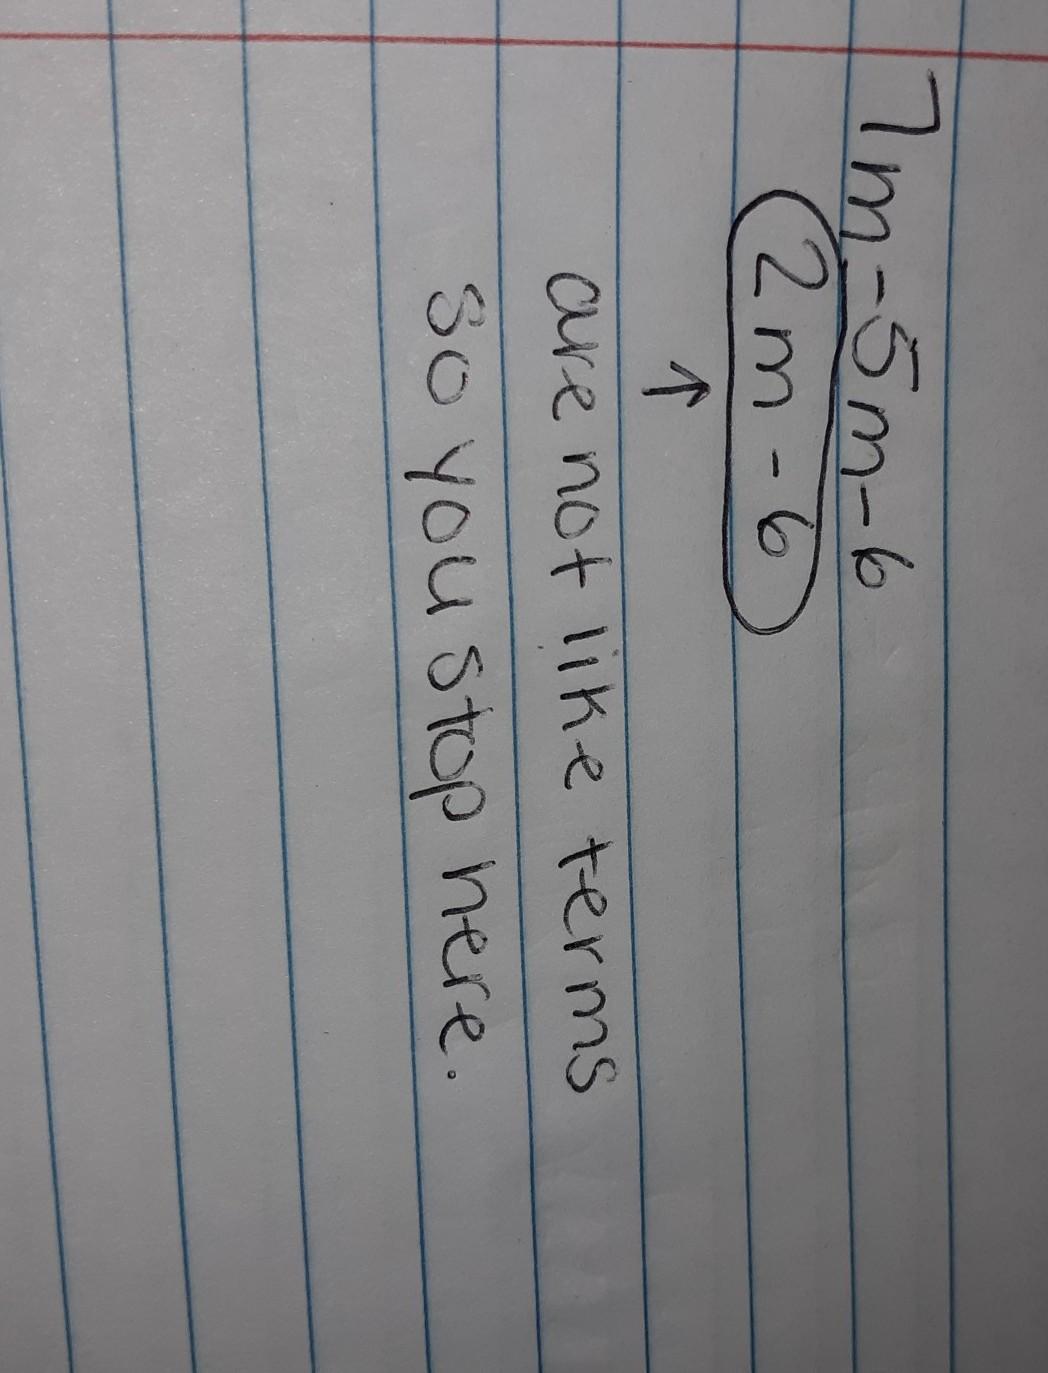 7m-5m-6
2m-6
↑
are not like terms
so you stop here.